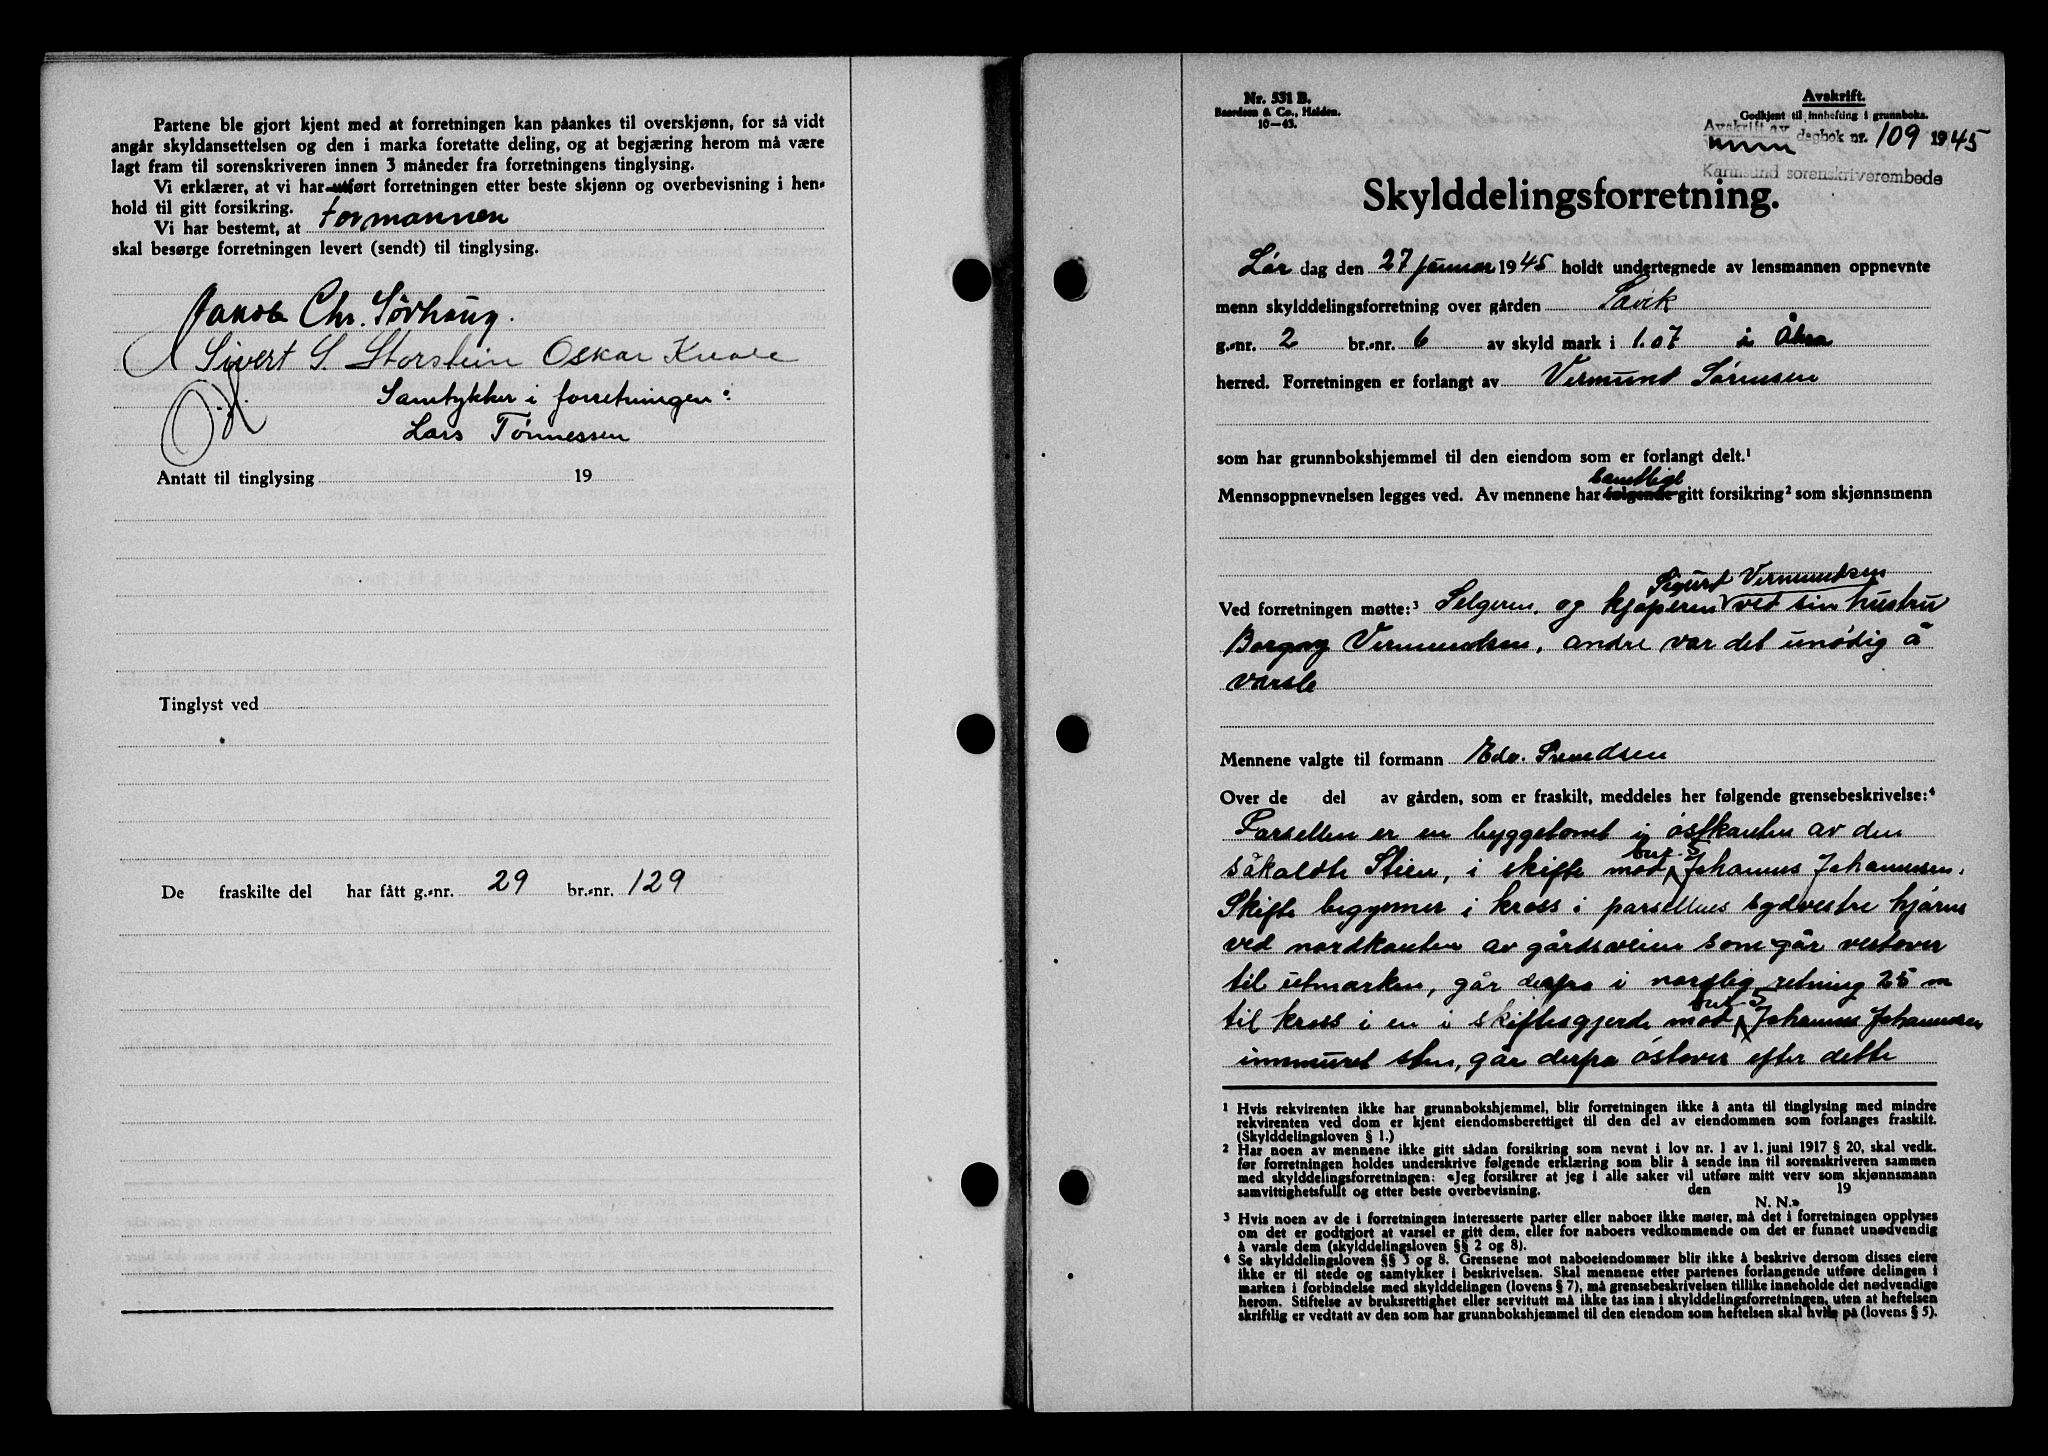 Partene ble gjort kjent med at forretningen kan påankes til overskjønn, for så vidt
angår skyldansettelsen og den i marka foretatte deling, og at begjæring herom må være
lagt fram til sorenskriveren innen 3 måneder fra forretningens tinglysing.
Vi erklærer, at vi har utført forretningen etter beste skjønn og overbevisning i hen-
hold til gitt forsikring.
Vi har bestemt, at formannen
skal besørge forretningen levert (sendt) til tinglysing.
Jakob Chr. Sørhaug.
Sivert S. Storstein Oskar
Samtykker i forretningen:
Lars Tønnessen
Antatt til tinglysing 19
Tinglyst ved
De fraskilte del har fått g.-nr. 29 br.-nr. 129
Nr. 531 B.
Baardsen & Co., Halden.
10—43.
Avskrift.
Godkjent til innhefting i grunnboka.
Avskrift av
dagbok nr. 109 1945
Karmsund sorenskriverembede
Skylddelingsforretning.
Lør dag den 27 januar 1945 holdt undertegnede av lensmannen oppnevnte
menn skylddelingsforretning over gården Sævik
g.-nr. 2 br.-nr. 6 av skyld mark i 1.07 i Åkra
herred. Forretningen er forlangt av Vermund Sørensen
som har grunnbokshjemmel til den eiendom som er forlangt delt.¹
samtlige
Mennsoppnevnelsen legges ved. Av mennene har følgende gitt forsikring² som skjønnsmenn
Sigurd Vermundsen
Ved forretningen møtte:³ Selgeren, og kjøperen ved sin hustru
Borgny Vermundsen, andre var det unødig å
varsle
Mennene valgte til formann Edv. Svendsen
Over de del av gården, som er fraskilt, meddeles her følgende grensebeskrivelse:⁴
Parsellen er en byggetomt i østkanten av den
bnr 5
såkaldte Stien, i skifte mod Johannes Johannesen.
Skifte begynner i kross i parsellens sydvestre hjørne
ved nordkanten av gårdsveien som går vestover
til utmarken, går derfra i nordlig retning 25 m
bnr 5
til kross i en i skiftesgjerde mod Johannes Johannesen
innmuret sten, går derfra østover efter dette
¹ Hvis rekvirenten ikke har grunnbokshjemmel, blir forretningen ikke å anta til tinglysing med mindre
rekvirenten ved dom er kjent eiendomsberettiget til den del av eiendommen som forlanges fraskilt.
(Skylddelingsloven § 1.)
² Har noen av mennene ikke gitt sådan forsikring som nevnt i lov nr. 1 av 1. juni 1917 § 20, skal vedk.
før forretningen holdes underskrive følgende erklæring som blir å sende inn til sorenskriveren sammen
med skylddelingsforretningen: «Jeg forsikrer at jeg i alle saker vil utføre mitt verv som skjønnsmann
samvittighetsfullt og etter beste overbevisning. den 19
N. N.»
³ Hvis noen av de i forretningen interesserte parter eller naboer ikke møter, må det i forretningen opplyses
om det er godtgjort at varsel er gitt dem, eller for naboers vedkommende om det er funnet unødvendig
å varsle dem (skylddelingsloven §§ 2 og 8).
⁴ Se skylddelingsloven §§ 3 og 8. Grensene mot naboeiendommer blir ikke å beskrive dersom disses eiere
ikke er til stede og samtykker i beskrivelsen. Skal mennene etter partenes forlangende utføre delingen i
marken i forbindelse med skylddelingen (lovens § 7), må grensebeskrivelsen tillike inneholde det nødvendige
herom. Stiftelse av bruksrettighet eller servitutt må ikke tas inn i skylddelingsforretningen, uten at heftelsen
skriftlig er vedtatt av den som har grunnbokshjemmel til den eiendom som heftelsen skal hvile på (lovens § 5).